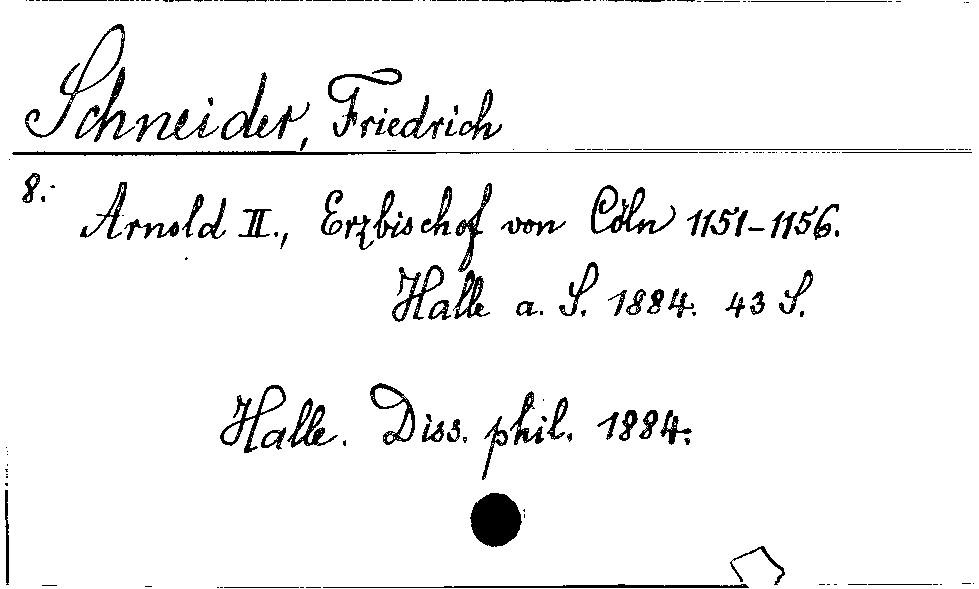 Schneider, Friedrich
8.
Arnold II., Erzbischof von Cöln 1151-1156.
Halle a. S. 1884. 43 S.
Halle. Diss. phil. 1884.